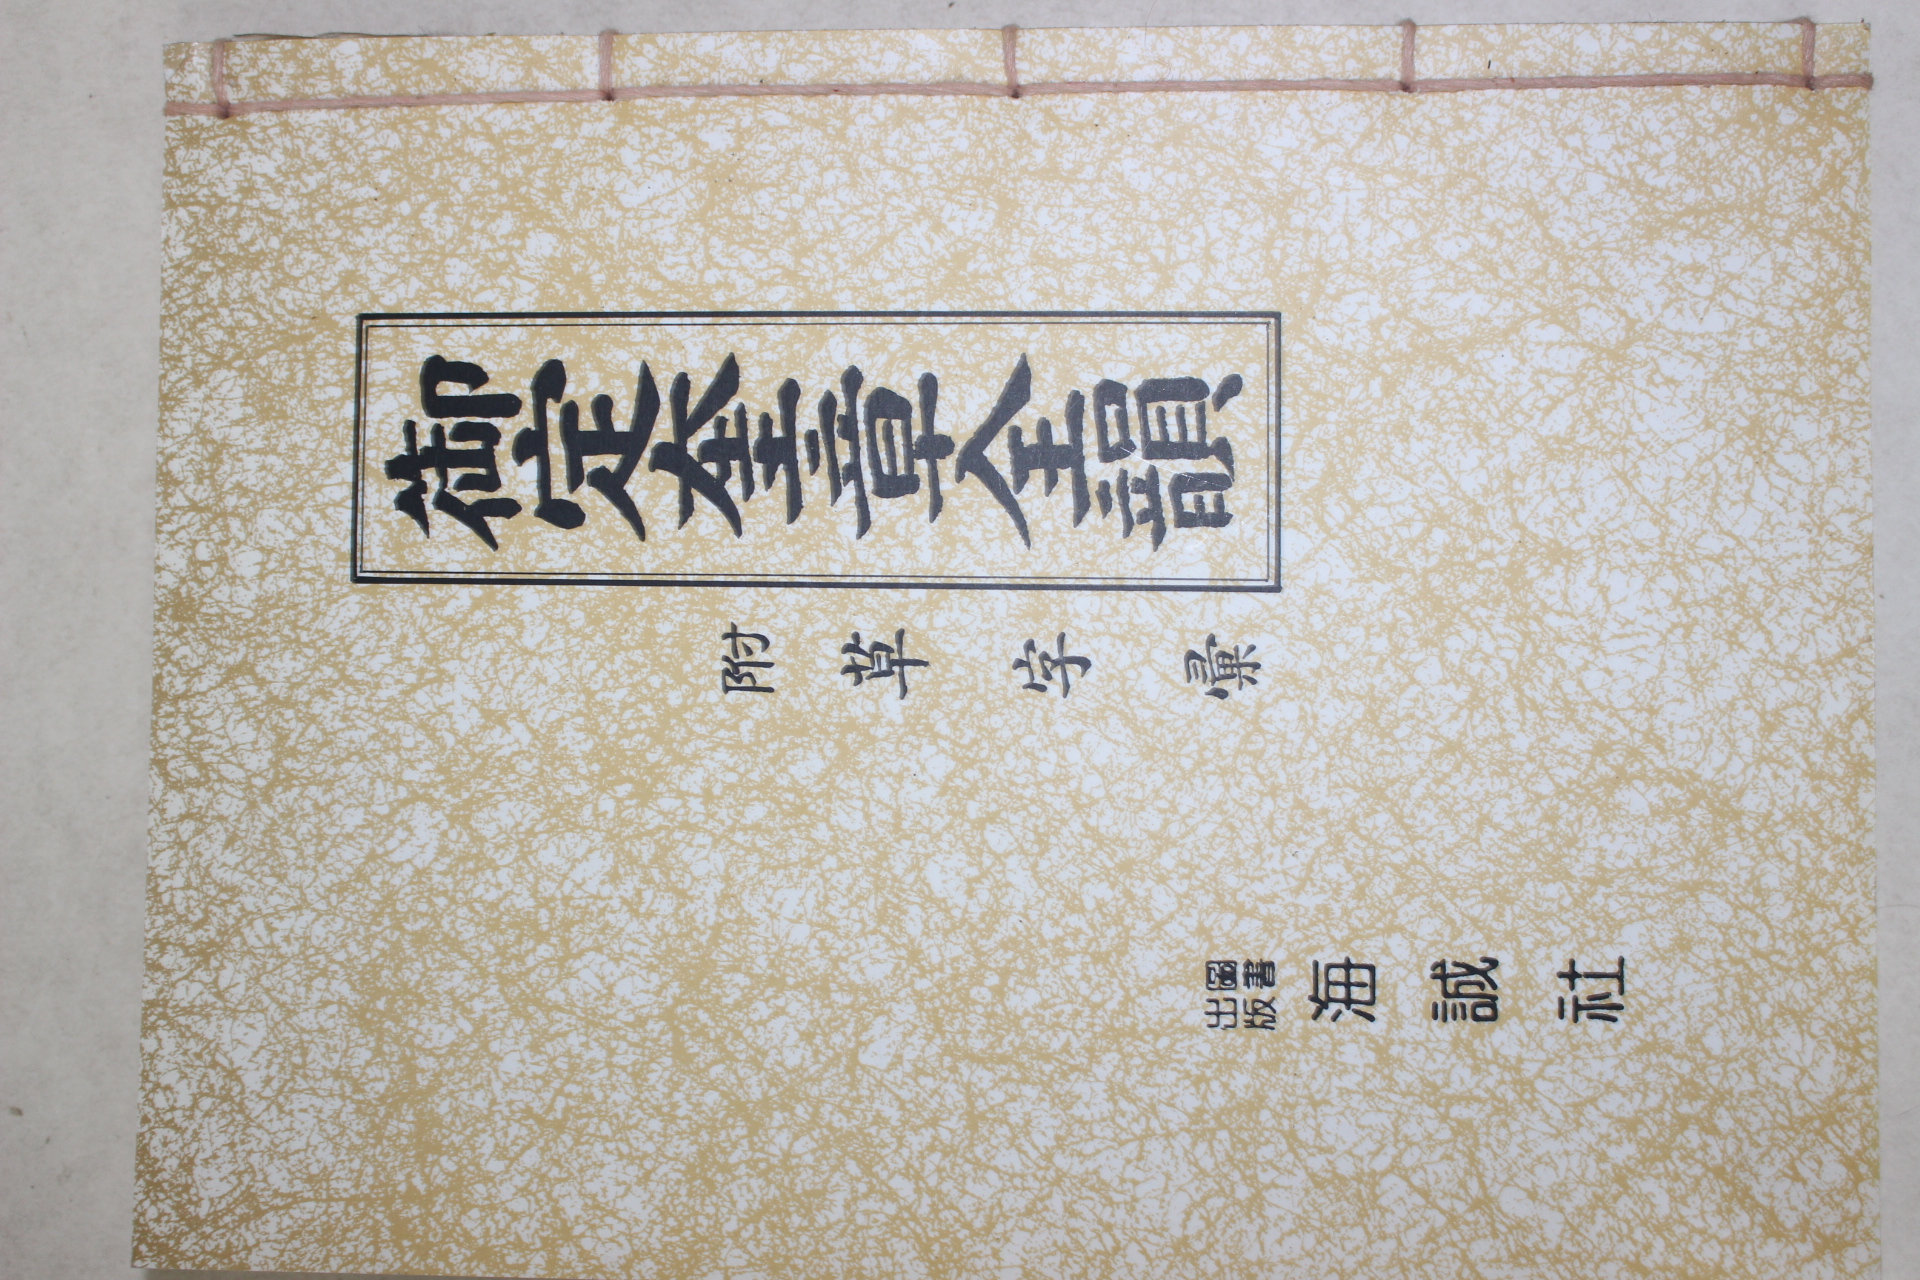 御定奎章全韻
附草字彙
圖書出版 海誠社